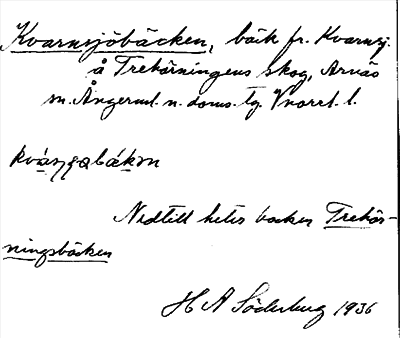 Kvarnsjöbäcken, bäck fr. Kvarnsj.
å Trekörningens skog, Arnäs
sn. Ångerml. n. doms. tg. Vnorrl. l.
Nedtill heter bäcken Trekör-
ningsbäcken
H A Söderberg 1936